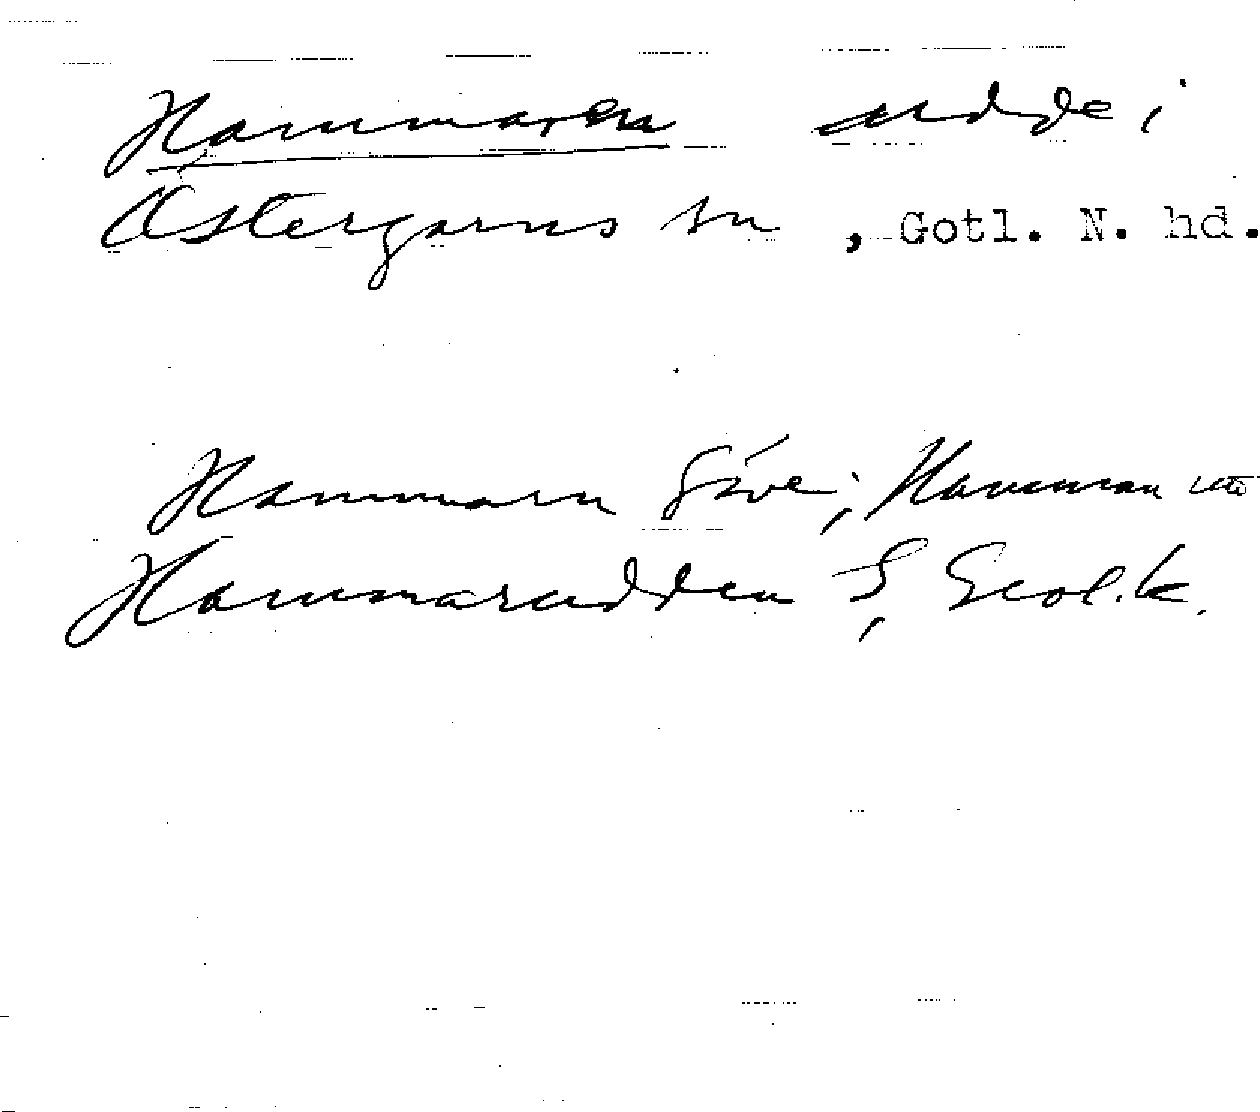 Hammaren udde i
Östergarns sn, Gotl. N. hd.
Hammarn Säve; Hamman
Hammarudden S, Geol.k.